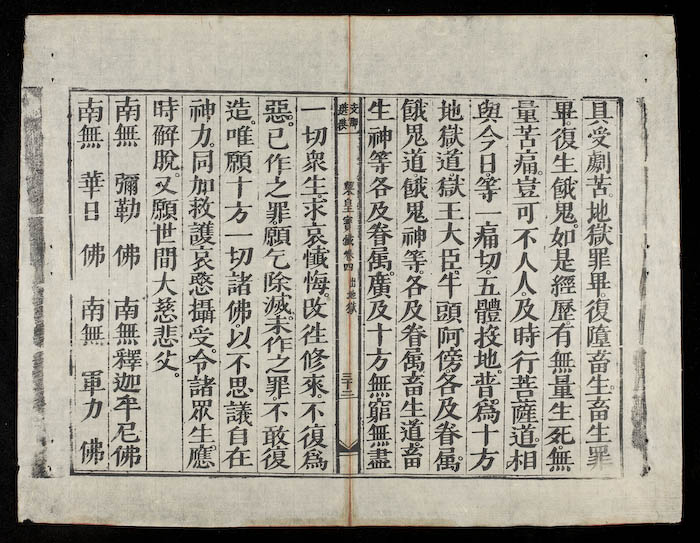 具受劇苦。地獄罪畢。復墮畜生。畜生罪
畢。復生餓鬼。如是經歷。有無量生死。無
量苦痛。豈可不人人及時行菩薩道。相
與今日。等一痛切。五體投地。普爲十方
地獄道。獄王大臣。牛頭阿傍。各及眷屬。
餓鬼道。餓鬼神等。各及眷屬。畜生道。畜
生神等。各及眷屬。廣及十方無窮無盡
梁皇寶懺卷四 出地獄 三十二
一切衆生。求哀懺悔。改往修來。不復爲
惡。已作之罪。願乞除滅。未作之罪。不敢復
造。唯願十方一切諸佛。以不思議自在
神力。同加救護。哀愍攝受。令諸眾生。應
時解脫。又願世間大慈悲父。
南無 彌勒 佛 南無釋迦牟尼佛
南無 華日 佛 南無 軍力 佛